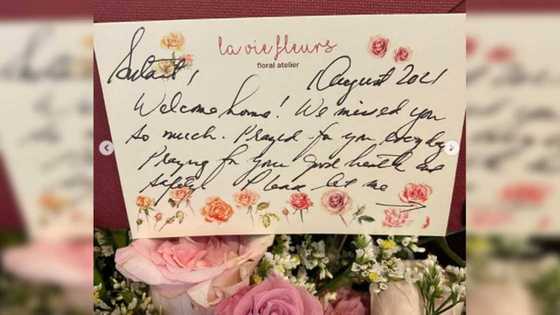 la vie fleurs
floral atelier
August 2021
Welcome home! We missed you
so much. Prayed for you everyday
Praying for your good health and
safety. Please let me